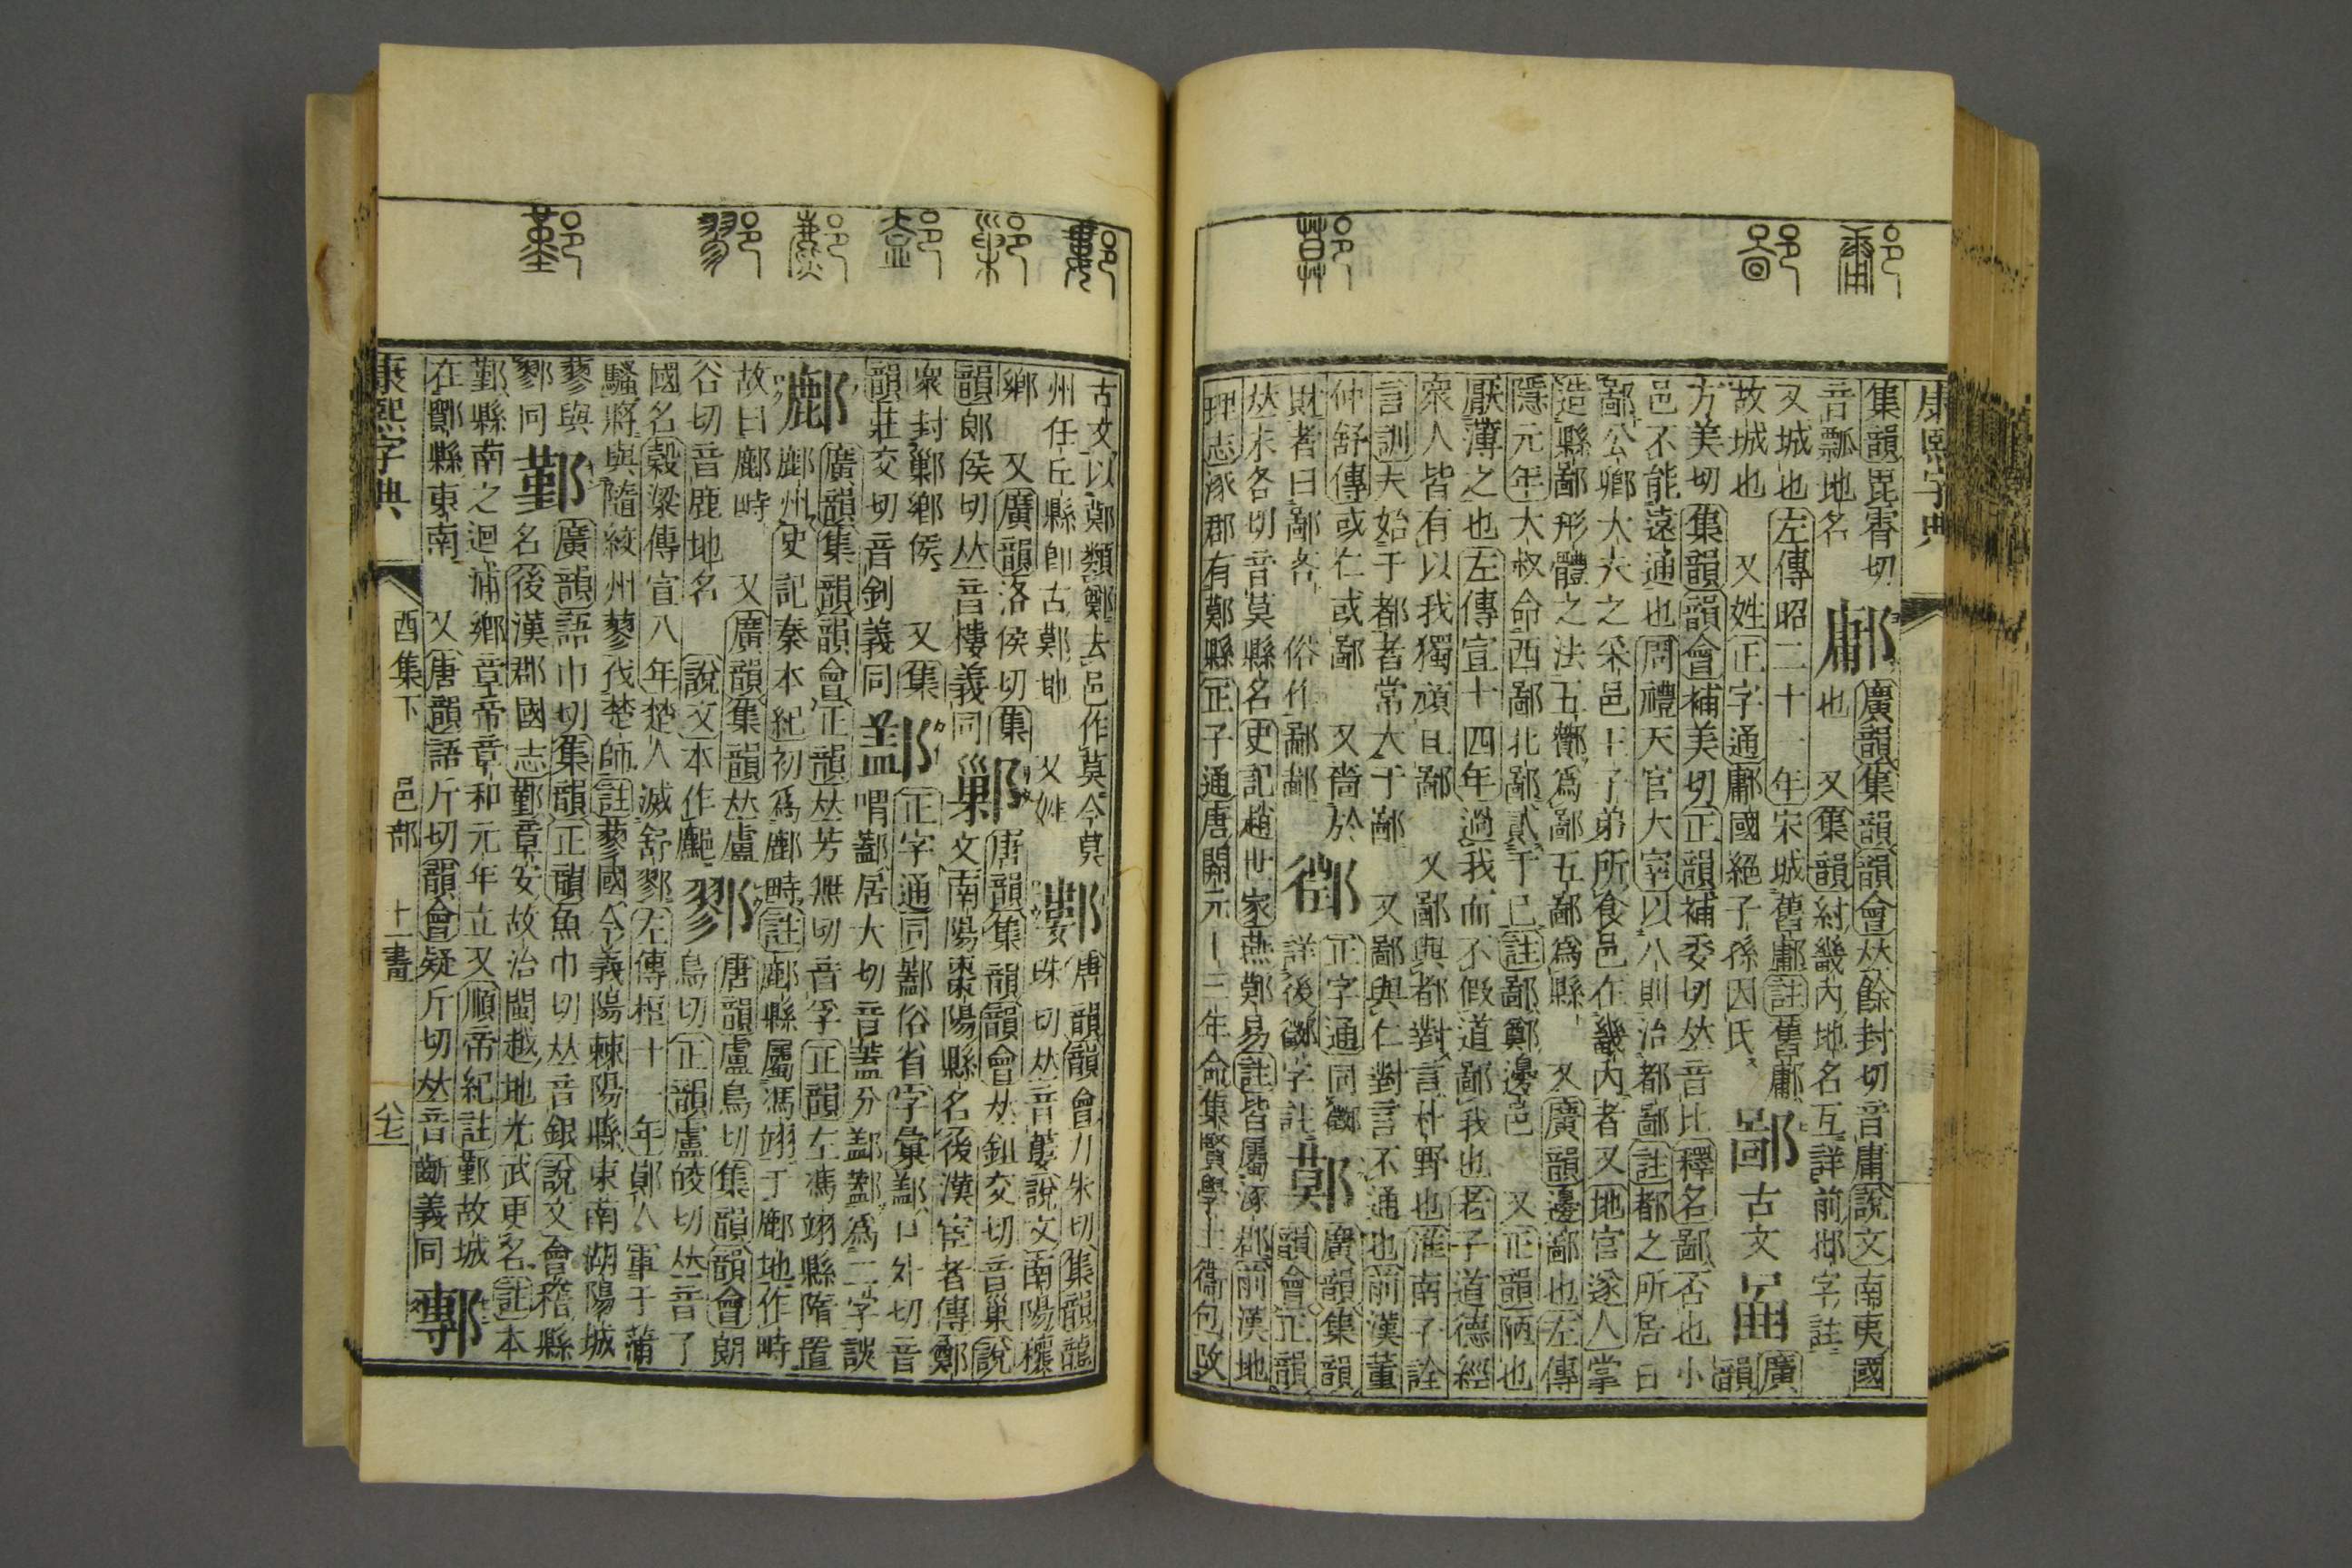 康熙字典
集韻毘霄切
音瓢地名
鄘
廣韻集韻韻會𠀤餘封切音庸說文南夷國
也 又集韻紂畿內地名互詳前邶字註
又城也左傳昭二十一年宋城舊鄘註舊鄘
故城也 又姓正字通鄘國絕子孫因氏
鄙 古文
廣
韻
方美切集韻韻會補美切正韻補委切𠀤音比釋名鄙否也小
邑不能遠通也周禮天官大宰以八則治都鄙註都之所居曰
鄙公卿大夫之采邑王子弟所食邑在畿內者又地官遂人掌
造縣鄙形體之法五酇爲鄙五鄙爲縣 又廣韻邊鄙也左傳
隱元年大叔命西鄙北鄙貳于已註鄙鄭邊邑 又正韻陋也
厭薄之也左傳宣十四年過我而不假道鄙我也老子道德經
衆人皆有以我獨頑且鄙 又鄙與都對言朴野也淮南子詮
言訓夫始于都者常大于鄙 又鄙與仁對言不通也前漢董
仲舒傳或仁或鄙 又嗇於
財者曰鄙吝 俗作鄙鄙
正字通同
詳後 字註
鄚
廣韻集韻
韻會正韻
𠀤末各切音莫縣名史記趙世家燕鄚易註皆屬涿郡前漢地
理志涿郡有鄚縣正子通唐開元十三年命集賢學士衞包改
古文以鄚類鄭去邑作莫今莫
州任丘縣卽古鄚地 又姓
唐韻韻會力朱切集韻龍
珠切𠀤音蔞說文南陽穰
鄉 又廣韻洛侯切集
韻郎侯切𠀤音樓義同
鄛
唐韻集韻韻會𠀤鉏交切音巢說
文南陽棗陽縣名後漢宦者傳鄭
衆封鄛鄉侯 又集
韻莊交切音釗義同
正字通同 俗省字彙 口外切音
嘳 居大切音蓋分 爲二字誤
鄜
廣韻集韻韻會正韻𠀤芳無切音孚正韻左馮翊縣隋置
鄜州史記秦本紀初爲鄜畤註鄜縣屬馮翊于鄜地作畤
故曰鄜畤 又廣韻集韻𠀤盧
谷切音鹿地名 說文本作
鄝
唐韻盧鳥切集韻韻會朗
鳥切正韻盧皎切𠀤音了
國名穀梁傳宣八年楚人滅舒鄝左傳桓十一年鄖人軍于蒲
騷將與隨絞州蓼伐楚師註蓼國今義陽棘陽縣東南湖陽城
蓼與
鄝同
鄞
廣韻語巾切集韻正韻魚巾切𠀤音銀說文會稽縣
名後漢郡國志鄞章安故治閩越地光武更名註本
鄞縣南之迴浦鄉章帝章和元年立又順帝紀註鄞故城
在鄮縣東南 又唐韻語斤切韻會疑斤切𠀤音齗義同
鄟
康熙字典 酉集下 邑部 十一畫 八七